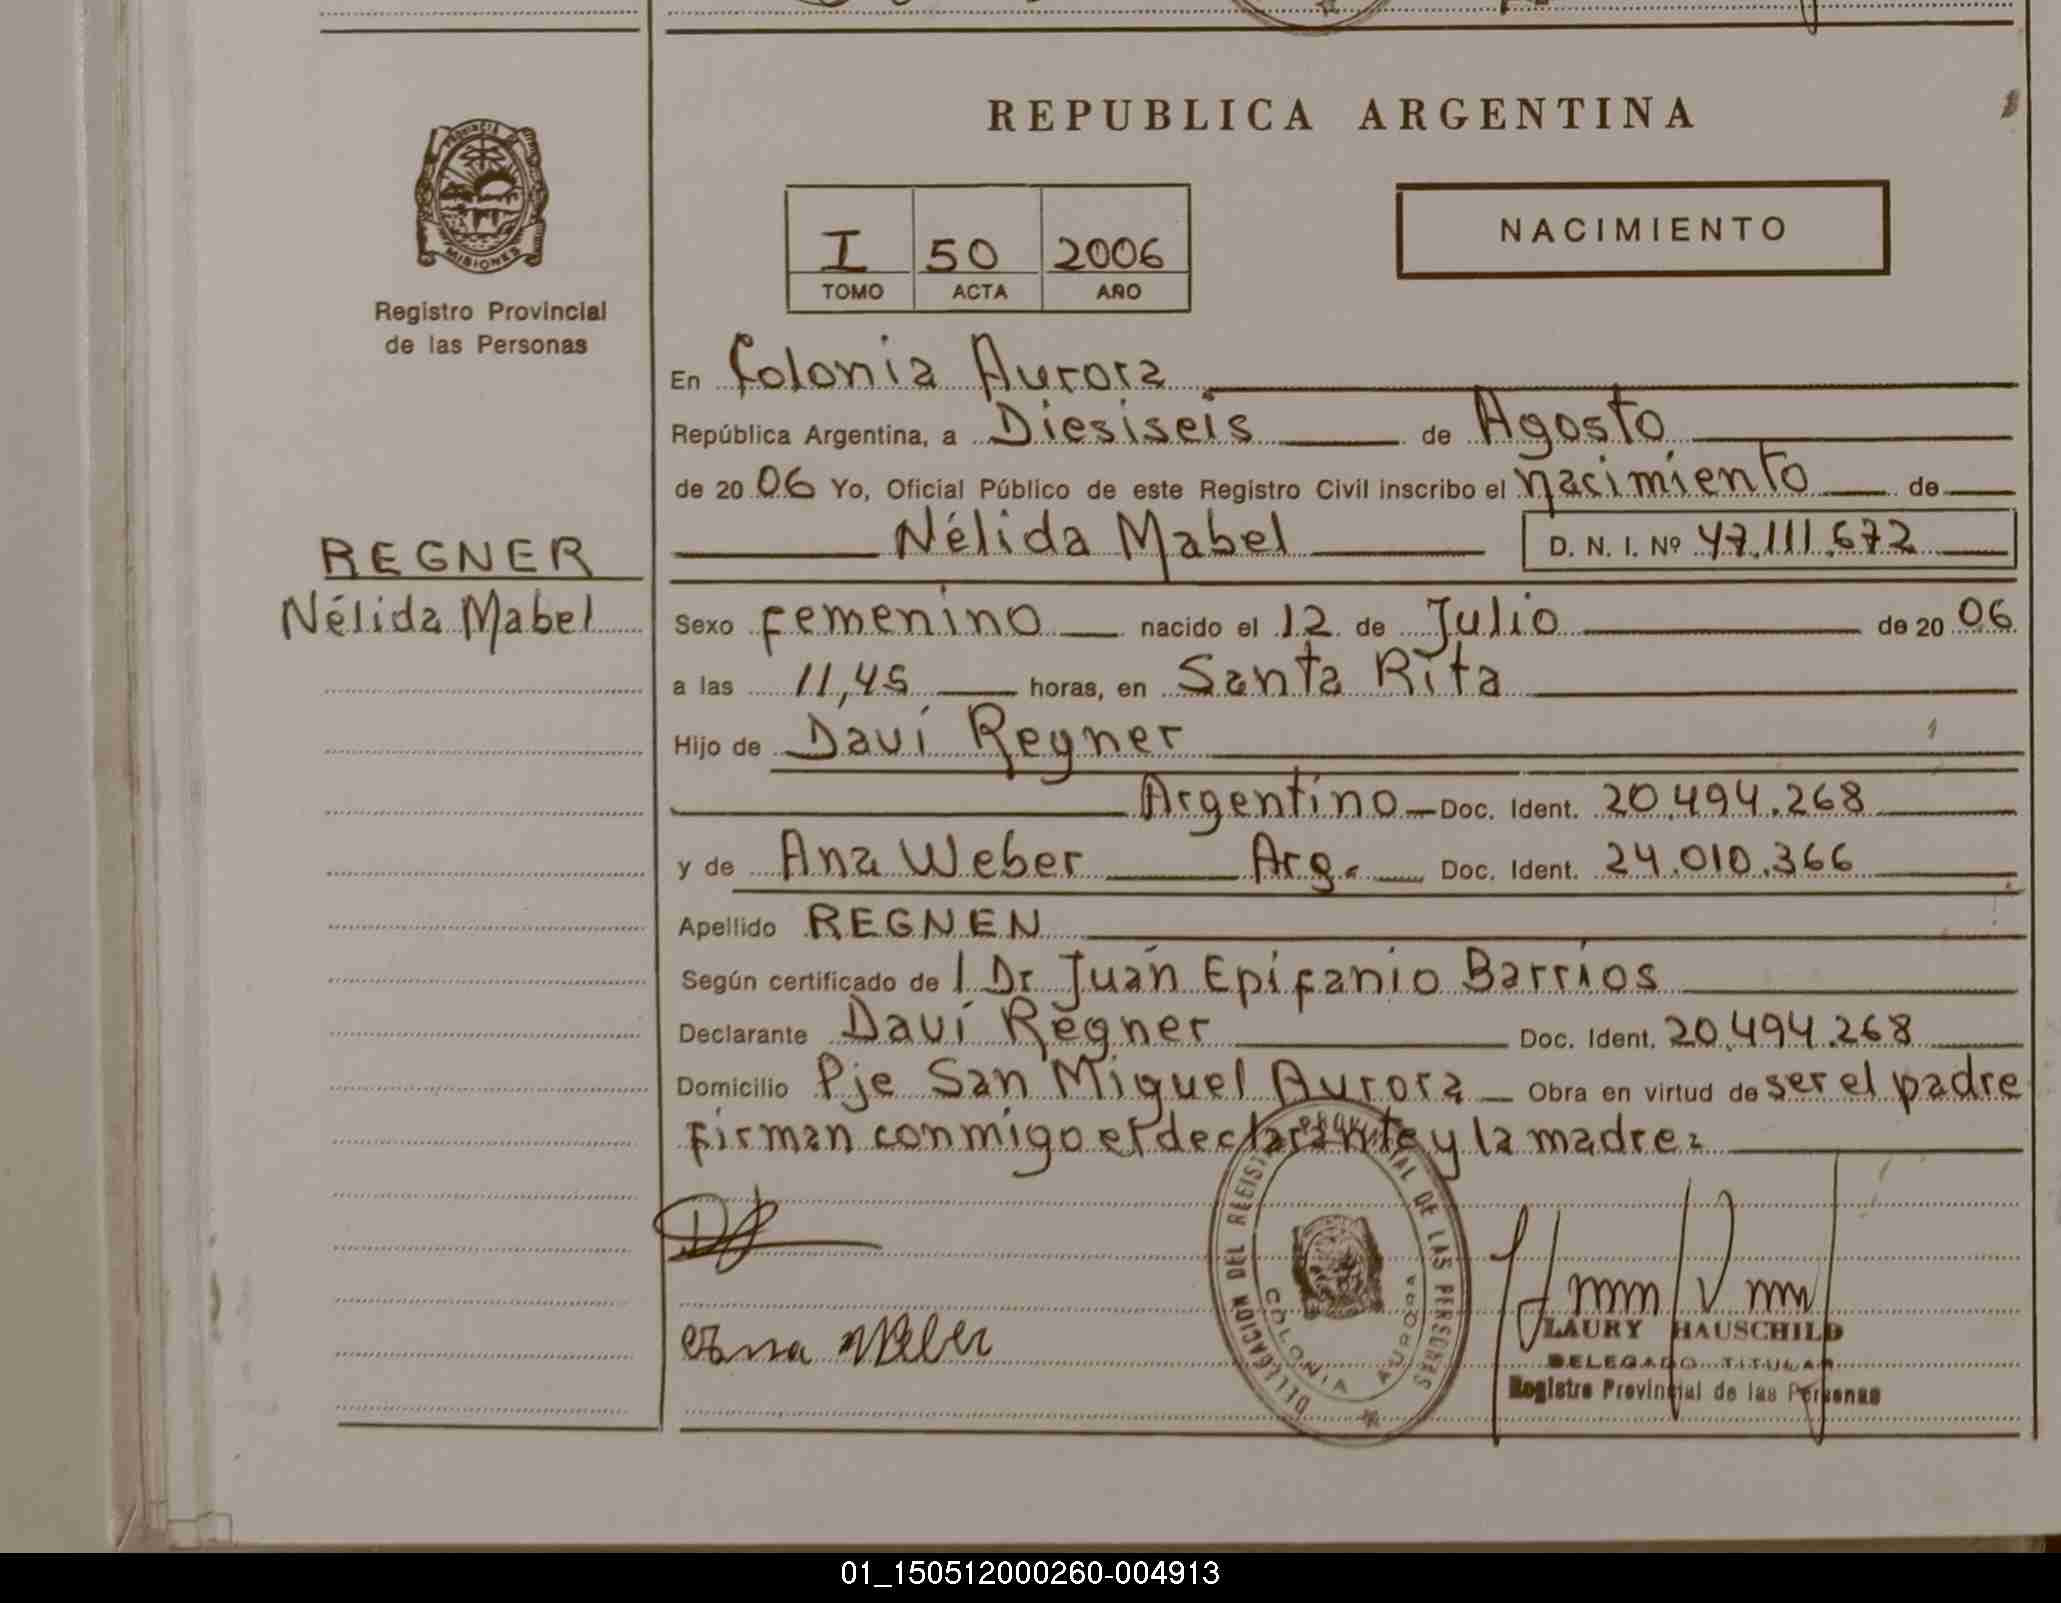 REPUBLICA ARGENTINA
PROVINCIA DE
MISIONES
Registro Provincial
de las Personas
I 50 2006
TOMO ACTA AÑO
NACIMIENTO
En Colonia Aurora
República Argentina, a Diesiseis de Agosto
de 20 06 Yo, Oficial Público de este Registro Civil inscribo el nacimiento de
Nélida Mabel D. N. I. Nº 47.111.672
REGNER
Nélida Mabel
Sexo femenino nacido el 12 de Julio de 20 06
a las 11,45 horas, en Santa Rita
Hijo de Davi Regner
Argentino Doc. Ident. 20.494.268
y de Ana Weber Arg. Doc. Ident. 24.010.366
Apellido REGNEN
Según certificado de / Dr Juan Epifanio Barrios
Declarante Davi Regner Doc. Ident. 20.494.268
Domicilio Pje San Miguel Aurora Obra en virtud de ser el padre
firman conmigo el declarante y la madre.
DELEGACION DEL REGISTRO PROVINCIAL DE LAS PERSONAS
COLONIA AURORA
Ana Weber
LAURY HAUSCHILD
DELEGADO TITULAR
Registro Provincial de las Personas
01_150512000260-004913